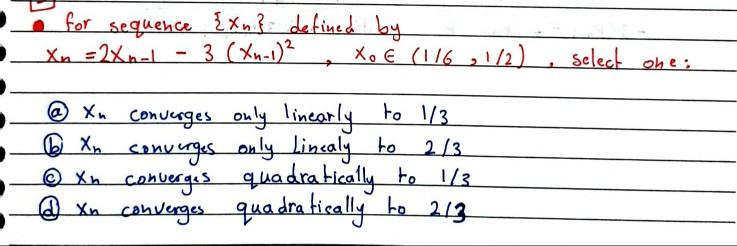 • for sequence {Xn} defined by
Xn = 2Xn-1 - 3 (Xn-1)² , X₀ ∈ (1/6 , 1/2) . select one :
ⓐ Xn converges only linearly to 1/3
ⓑ Xn converges only Linealy to 2/3
ⓒ Xn converges quadratically to 1/3
ⓓ Xn converges quadratically to 2/3